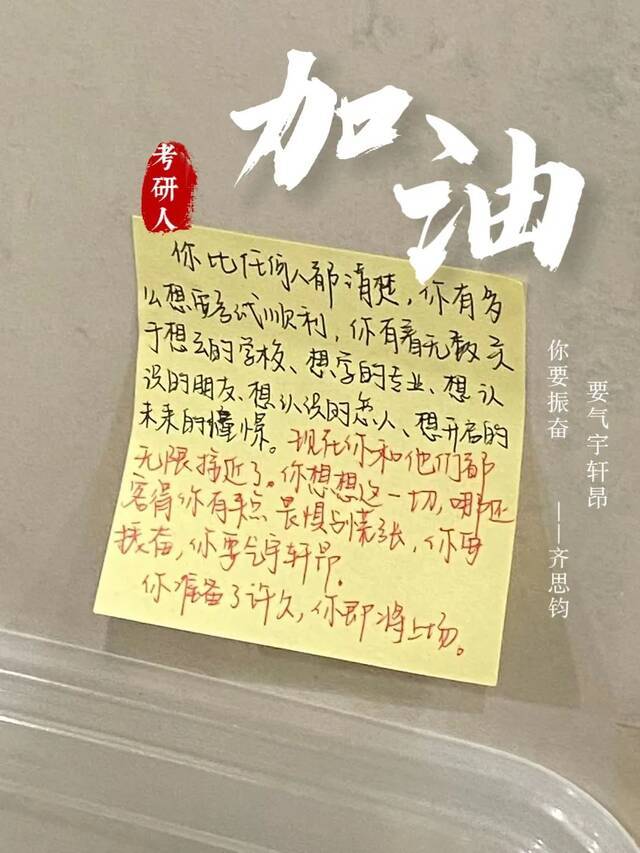 加油
考研人
你比任何人都清楚，你有多
么想要考试顺利，你有着无数关
于想去的学校、想学的专业、想认
识的朋友、想认识的恋人、想开启的
未来的憧憬。现在你和他们都
无限接近了。你想想这一切，哪还
容得你有半点畏惧与慌张，你要
振奋，你要气宇轩昂。
你准备了许久，你即将上场。
你要振奋
要气宇轩昂
——齐思钧